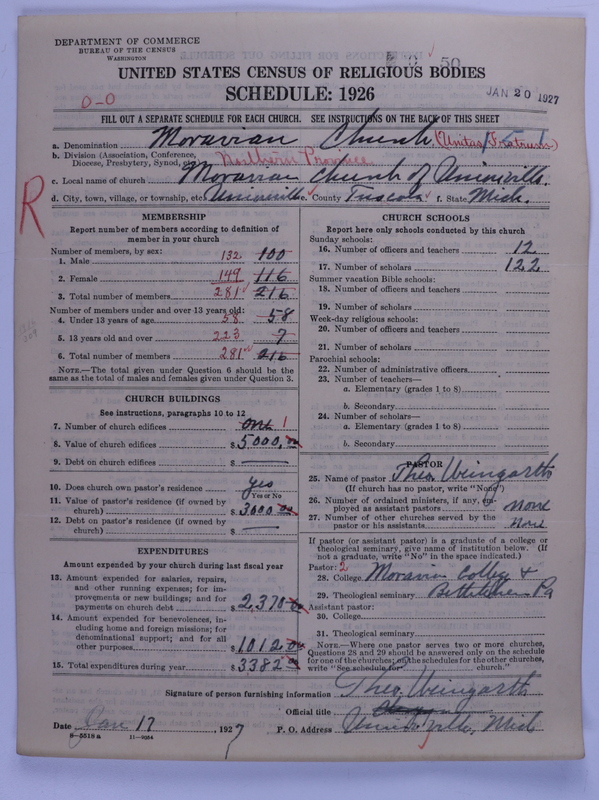 DEPARTMENT OF COMMERCE
BUREAU OF THE CENSUS
WASHINGTON
50
UNITED STATES CENSUS OF RELIGIOUS BODIES
SCHEDULE: 1926
JAN 20 1927
0-0
FILL OUT A SEPARATE SCHEDULE FOR EACH CHURCH. SEE INSTRUCTIONS ON THE BACK OF THIS SHEET
a. Denomination Moravian Church (Unitas Fratrum)
b. Division (Association, Conference, Diocese, Presbytery, Synod, etc.) Northern Province
c. Local name of church Moravian Church of Unionville.
d. City, town, village, or township, etc. Unionville e. County Tuscola f. State Mich.
R
MEMBERSHIP
Report number of members according to definition of member in your church
Number of members, by sex:
1. Male 132 100
2. Female 149 116
3. Total number of members 281 216
Number of members under and over 13 years old:
4. Under 13 years of age 58 58
5. 13 years old and over 223 7
6. Total number of members 281 216
NOTE.—The total given under Question 6 should be the same as the total of males and females given under Question 3.
CHURCH BUILDINGS
See instructions, paragraphs 10 to 12
7. Number of church edifices one 1
8. Value of church edifices $5000.00
9. Debt on church edifices $ —
10. Does church own pastor's residence yes
Yes or No
11. Value of pastor's residence (if owned by church) $3000.00
12. Debt on pastor's residence (if owned by church) $ —
EXPENDITURES
Amount expended by your church during last fiscal year
13. Amount expended for salaries, repairs, and other running expenses; for improvements or new buildings; and for payments on church debt $2,370.00
14. Amount expended for benevolences, including home and foreign missions; for denominational support; and for all other purposes $1012.00
15. Total expenditures during year $3382.00
CHURCH SCHOOLS
Report here only schools conducted by this church
Sunday schools:
16. Number of officers and teachers 12
17. Number of scholars 122
Summer vacation Bible schools:
18. Number of officers and teachers
19. Number of scholars
Week-day religious schools:
20. Number of officers and teachers
21. Number of scholars
Parochial schools:
22. Number of administrative officers
23. Number of teachers—
a. Elementary (grades 1 to 8)
b. Secondary
24. Number of scholars—
a. Elementary (grades 1 to 8)
b. Secondary
PASTOR
25. Name of pastor Theo. Weingarth
(If church has no pastor, write "None")
26. Number of ordained ministers, if any, employed as assistant pastors none
27. Number of other churches served by the pastor or his assistants none
If pastor (or assistant pastor) is a graduate of a college or theological seminary, give name of institution below. (If not a graduate, write "No" in the space indicated.)
Pastor: 2
28. College Moravian College &
29. Theological seminary Bethlehem Pa
Assistant pastor:
30. College
31. Theological seminary
NOTE.—Where one pastor serves two or more churches, Questions 28 and 29 should be answered only on the schedule for one of the churches; on the schedules for the other churches, write "See schedule for church."
Signature of person furnishing information Theo. Weingarth
Official title
Date Jan 17, 1927
P. O. Address Unionville, Mich
8—5518a 11—9054